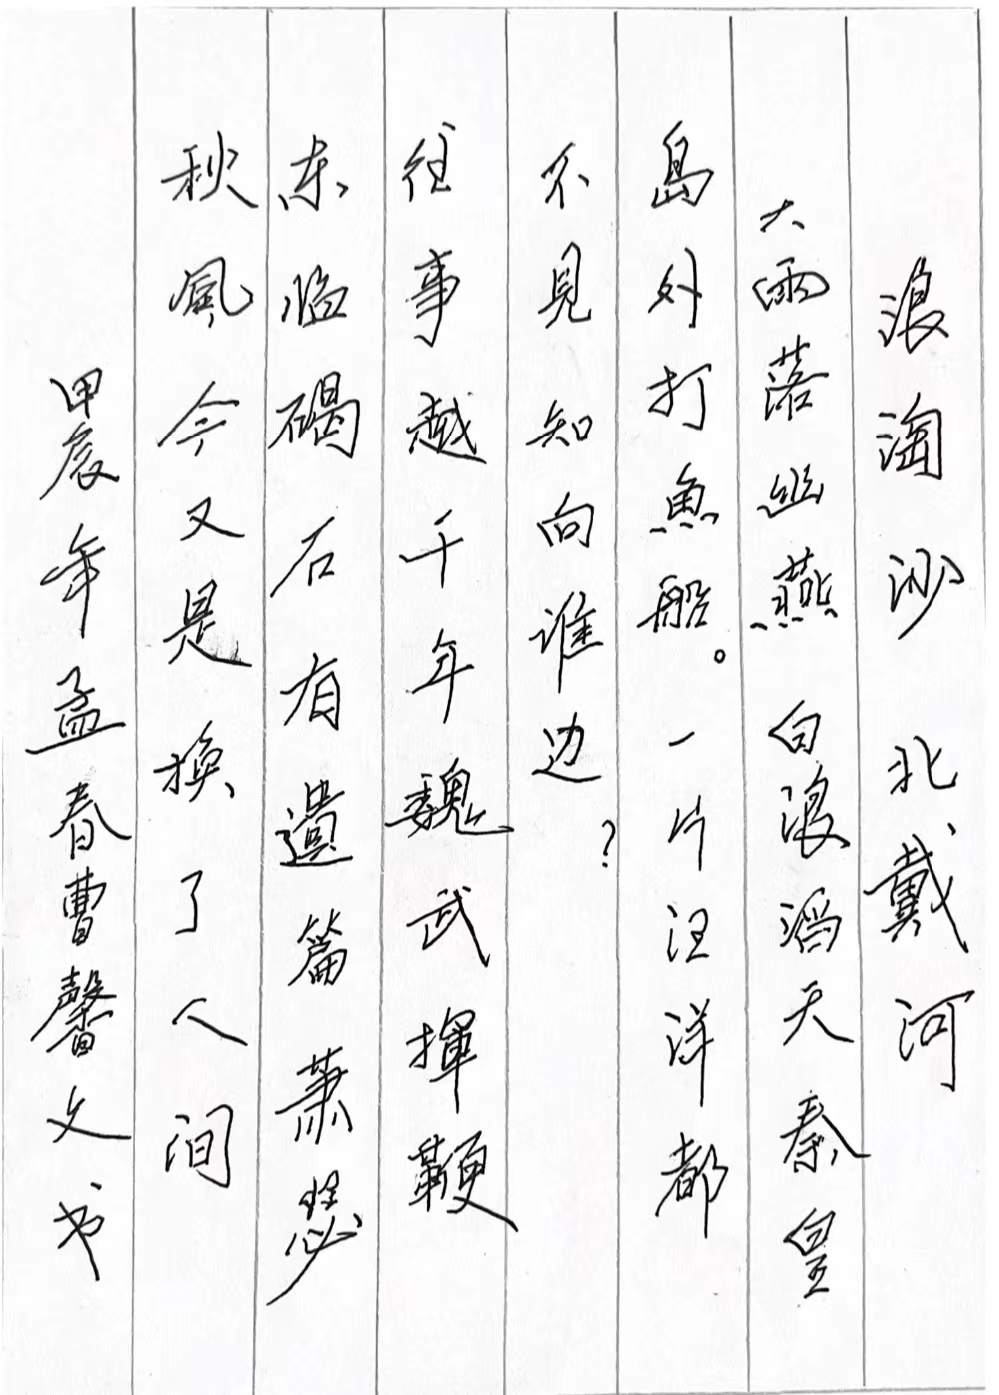 浪淘沙 北戴河
大雨落幽燕 白浪滔天秦皇
島外打魚船。一片汪洋都
不見知向谁边？
往事越千年魏武揮鞭
东临碣石有遺篇萧瑟
秋風今又是换了人间
甲辰年孟春曹馨文书